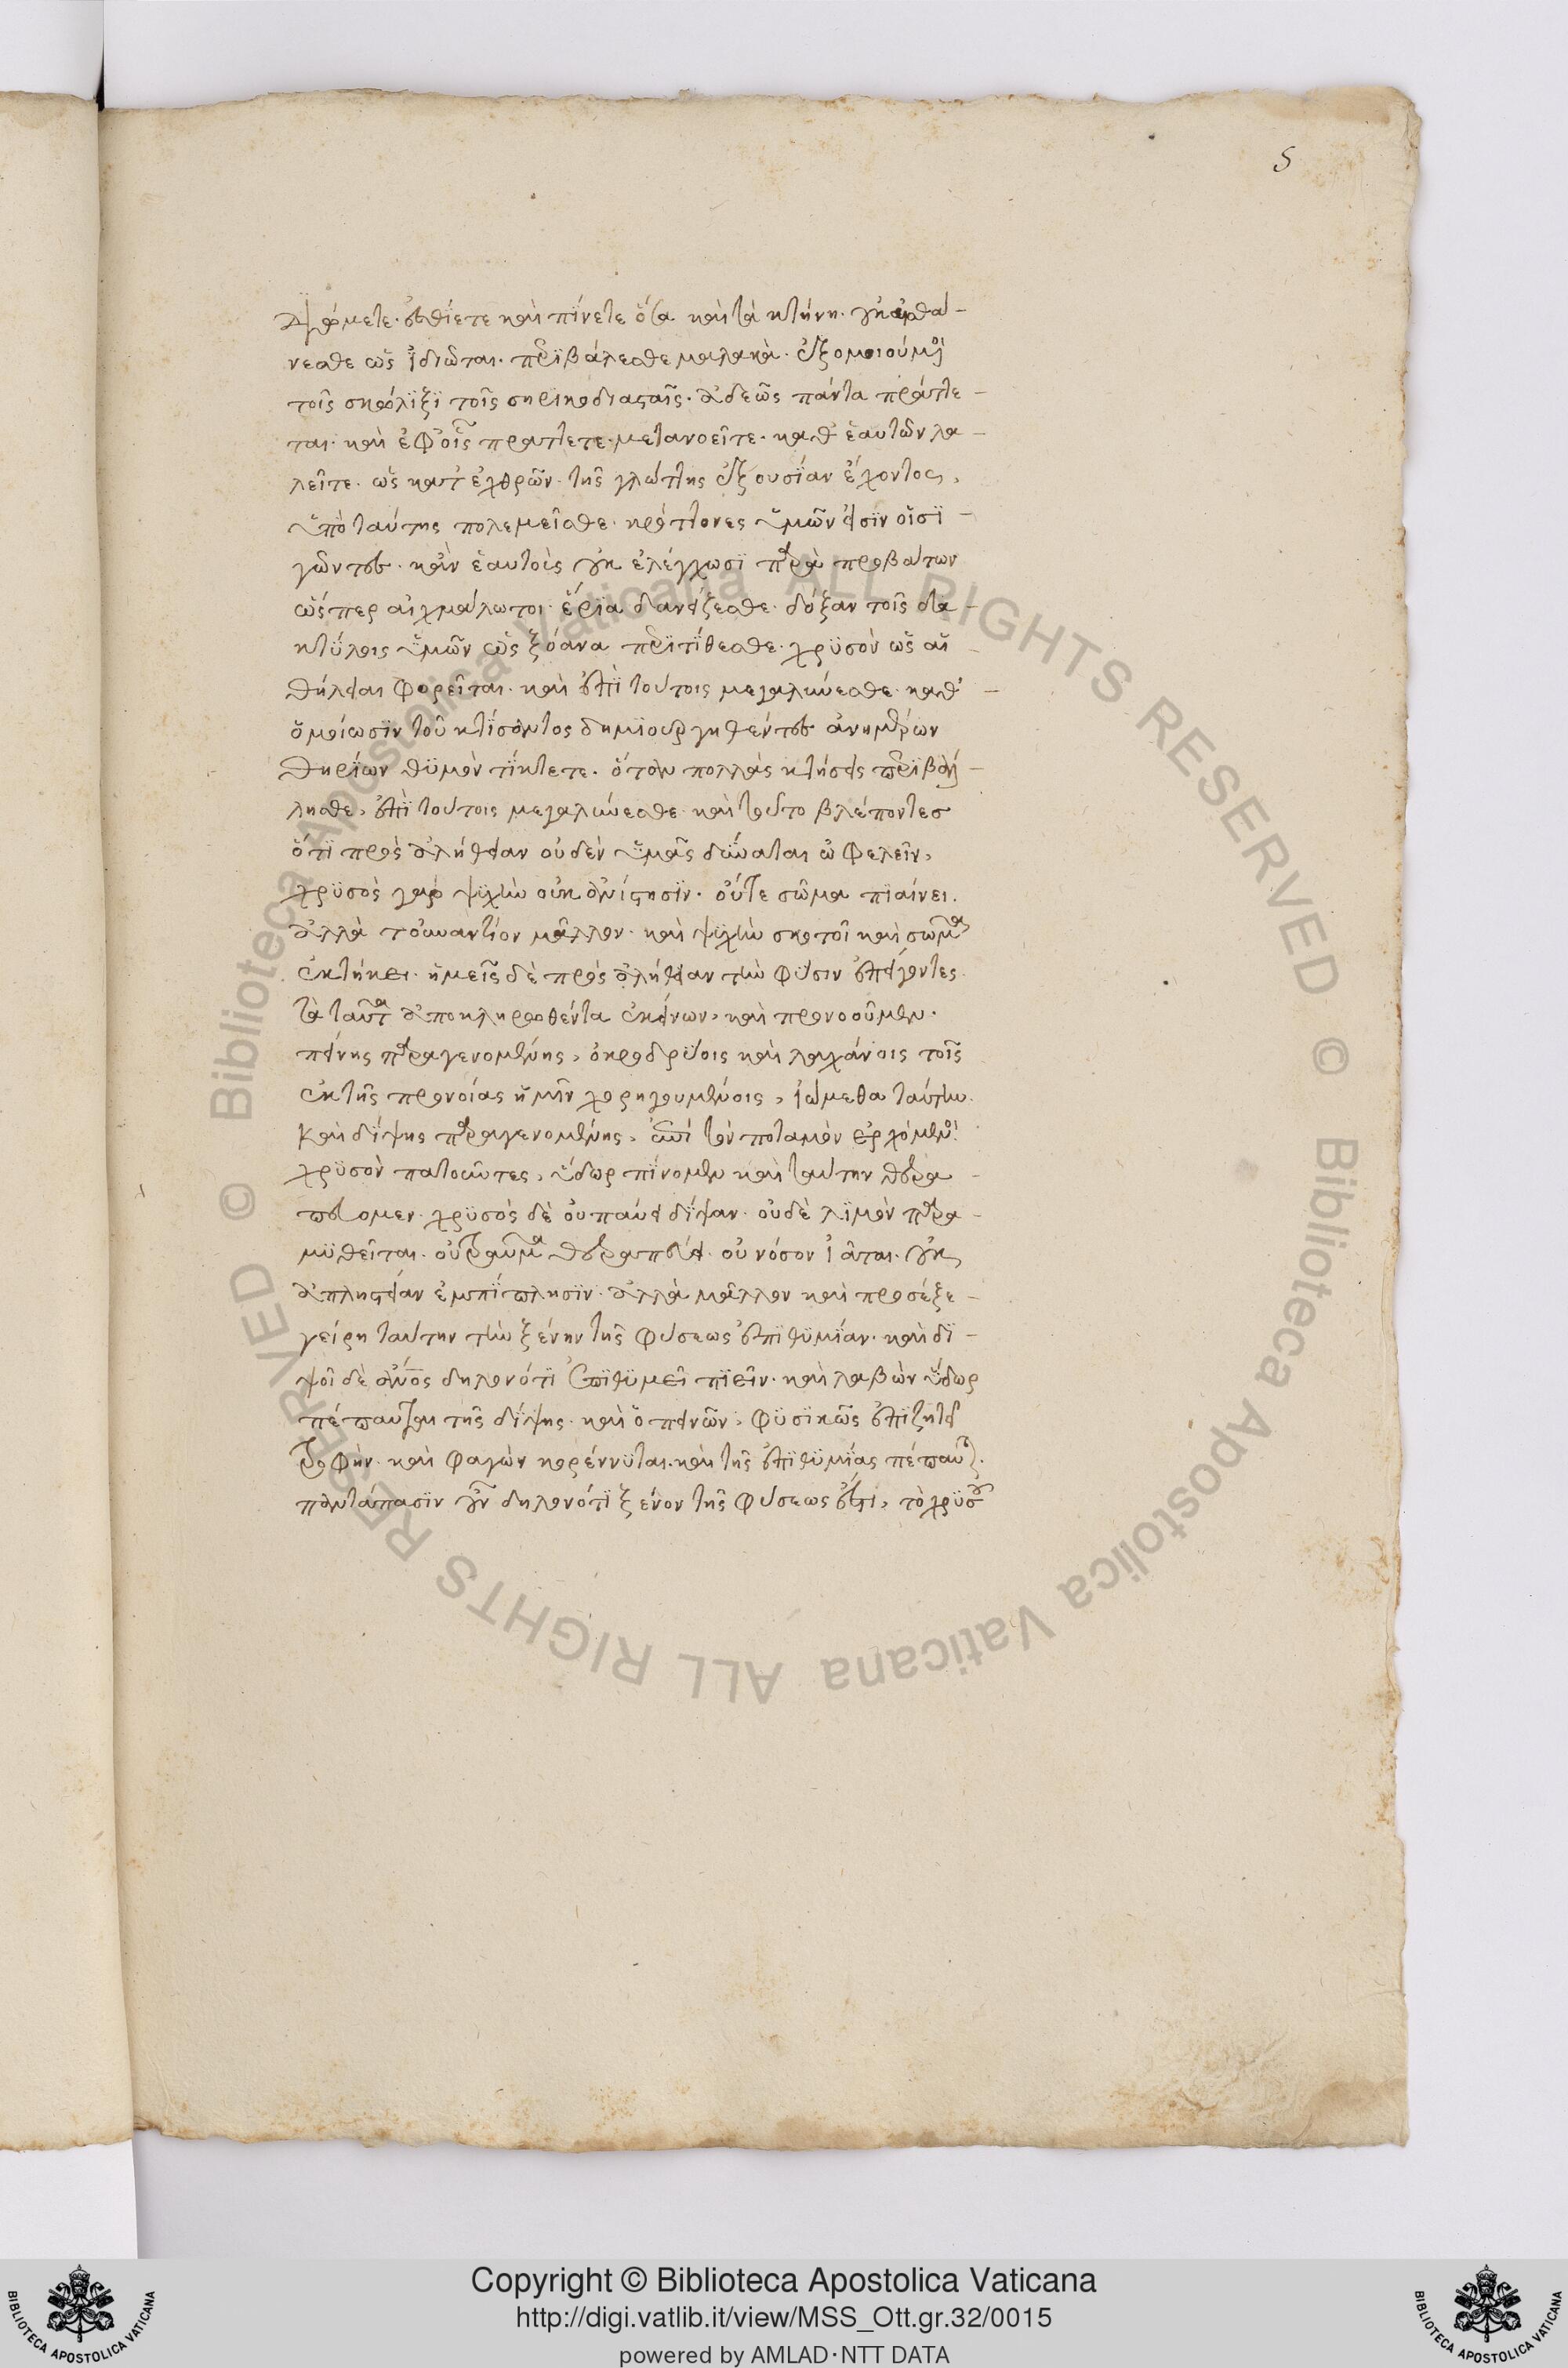 5
τρέμετε. ἐσθίετε καὶ πίνετε ὅσα καὶ τὰ κτήνη. οὐκ αἰσθά-
νεσθε ὡς ἰδιῶται. περιβάλεσθε μαλακὰ. ἐξομοιούμενοι
τοῖς σκώληξϊ τοῖς σηρικοδιασταῖς. ἀδεῶς πάντα πράττε-
ται. καὶ ἐφ' οἷς πραττετε. μετανοεῖτε. καθ' ἑαυτῶν λα-
λεῖτε. ὡς κατ' ἐχθρῶν. τῆς γλώττης ἐξουσίαν ἔχοντες,
ὑπὸ ταύτης πολεμεῖσθε. κρείττονες ὑμῶν εἰσϊν οἱ σϊ-
γῶντες. κἂν ἑαυτοὶς οὐκ ἐλέγχωσϊ παρὰ προβάτων
ὥσπερ αἰχμάλωτοι. ἔρϊα δανείζεσθε. δόξαν τοῖς δα-
κτύλοις ὑμῶν ὡς ξόανα περιτίθεσθε. χρϋσὸν ὡς αἱ
θήλειαι φορεῖται. καὶ ἐπὶ τούτοις μεγαλύνεσθε. καθ'
ὁμοίωσϊν τοῦ κτίσαντος δημϊουργηθέντες ἀνημέρων
θηρίων θϋμὸν τίκτετε. ὅταν πολλὰς κτήσεις περϊβάλ-
λησθε, ἐπὶ τούτοις μεγαλύνεσθε. καὶ τοῦτο βλέποντες
ὅτϊ πρὸς ἀλήθειαν οὐδὲν ὑμᾶς δύναται ὠφελεῖν,
χρϋσὸς γὰρ ψϋχὴν οὐκ ἀνίστησϊν. οὔτε σῶμα πϊαίνει.
ἀλλὰ τοὐναντίον μᾶλλον. καὶ ψϋχὴν σκοτοῖ καὶ σῶμα
ἐκτήκει. ἡμεῖς δὲ πρὸς ἀλήθειαν τὴν φύσιν ἐπείγοντες
τὰ ταῦτα ἀποκληρωθέντα ἐκείνων, καὶ προνοοῦμεν.
πείνης παραγενομένης, ἀκροδρύοις καὶ λαχάνοις τοῖς
ἐκ τῆς προνοίας ἡμῖν χορηγουμένοις, ἰώμεθα ταύτην.
καὶ δίψης παραγενομένης, ἐπὶ τὸν ποταμὸν ἐρχόμενοι
χρϋσὸν πατοῦντες, ὕδωρ πίνομεν καὶ ταύτην θερα-
πεύομεν. χρϋσὸς δὲ οὐ παύει δίψαν. οὐδὲ λϊμὸν παρα-
μϋθεῖται. οὐ τραῦμα θεραπεύει. οὐ νόσον ἰᾶται. οὐκ
ἀπληστείαν ἐμπίπλησϊν. ἀλλὰ μᾶλλον καὶ προσέξε-
γείρη ταύτην τὴν ξένην τῆς φύσεως ἐπιθϋμίαν. καὶ δϊ-
ψοῖ δὲ ἄνος δηλονότϊ ἐπϊθϋμεῖ πϊεῖν. καὶ λαβὼν ὕδωρ
πέπαυται τῆς δίψης. καὶ ὁ πεινῶν, φϋσϊκῶς ἐπϊζητεῖ
τροφὴν. καὶ φαγὼν κορέννϋται. καὶ τῆς ἐπϊθϋμίας πέπαυται.
παντάπασϊν οὖν δηλονότϊ ξένον τῆς φύσεως ἐστὶ, τὸ χρϋσοῦ
Copyright © Biblioteca Apostolica Vaticana
http://digi.vatlib.it/view/MSS_Ott.gr.32/0015
powered by AMLAD·NTT DATA
© Biblioteca Apostolica Vaticana ALL RIGHTS RESERVED
© Biblioteca Apostolica Vaticana ALL RIGHTS RESERVED
BIBLIOTECA APOSTOLICA VATICANA
BIBLIOTECA APOSTOLICA VATICANA